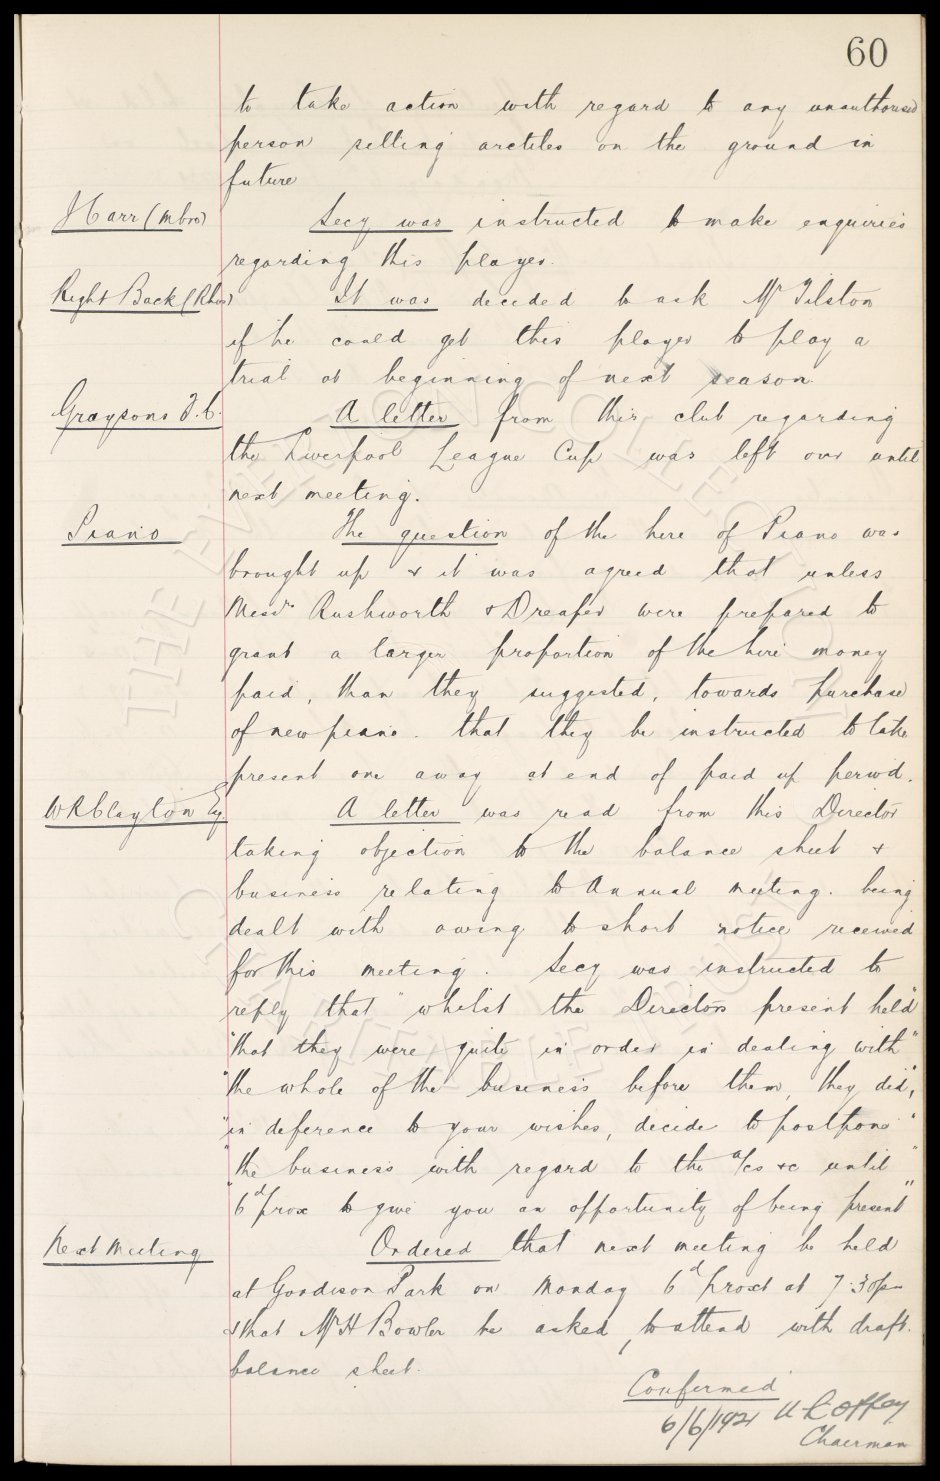 60
to take action with regard to any unauthorised
person selling arctiles on the ground in
future
Harr (Mbro)
Secy was instructed to make enquiries
regarding this player.
Right Back (Rhos)
It was decided to ask Mr Tilston
if he could get this player to play a
trial at beginning of next season.
Graysons F.C.
A letter from this club regarding
the Liverpool League Cup was left over until
next meeting.
Piano
The question of the hire of Piano was
brought up & it was agreed that unless
Messrs Rushworth & Dreaper were prepared to
grant a larger proportion of the hire money
paid, than they suggested, towards purchase
of new piano. that they be instructed to take
present one away at end of paid up period.
W R Clayton Esq
A letter was read from this Director
taking objection to the balance sheet &
business relating to Annual meeting. being
dealt with owing to short notice received
for this meeting. Secy was instructed to
reply that "whilst the Directors present held"
"that they were quite in order in dealing with"
"the whole of the business before them, they did,"
"in deference to your wishes, decide to postpone"
"the business with regard to the a/cs &c until"
"6d prox to give you an opportunity of being present"
Next Meeting
Ordered that next meeting be held
at Goodison Park on Monday 6d proxt at 7.30pm
& that Mr H Bowler be asked, to attend with draft.
balance sheet.
Confirmed
6/6/1921 W C Cuffay
Chairman
THE EVERTON COLLECTION
CHARITABLE TRUST